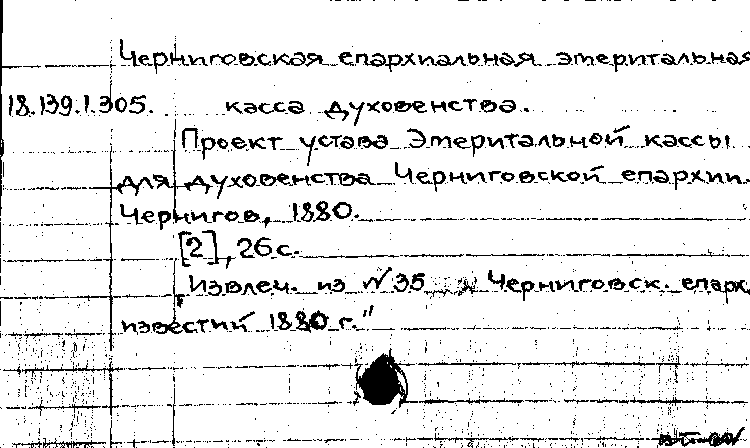 Черниговская епархиальная эмеритальная
18.139.1.305. касса духовенства.
Проект устава Эмеритальной кассы
для духовенства Черниговской епархии.
Чернигов, 1880.
[2], 26 с.
„Извлеч. из № 35 Черниговск. епарх.
известий 1880 г."